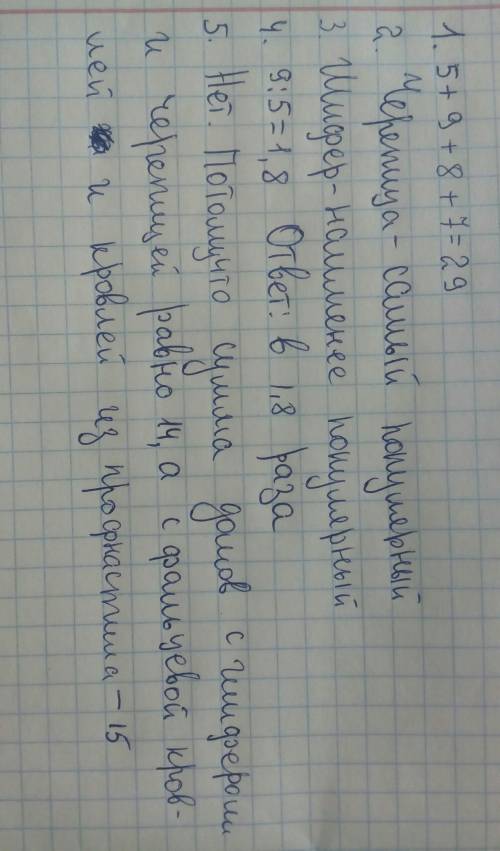 1. 5+9+8+7=29
2. Черепица - самый популярный
3 Шифер - наименее популярный
4. 9:5=1,8 Ответ: в 1,8 раза
5. Нет. Потомучто сумма домов с шифером
и черепицей равно 14, а с фальцевой кров-
лей и кровлей из профнастила - 15